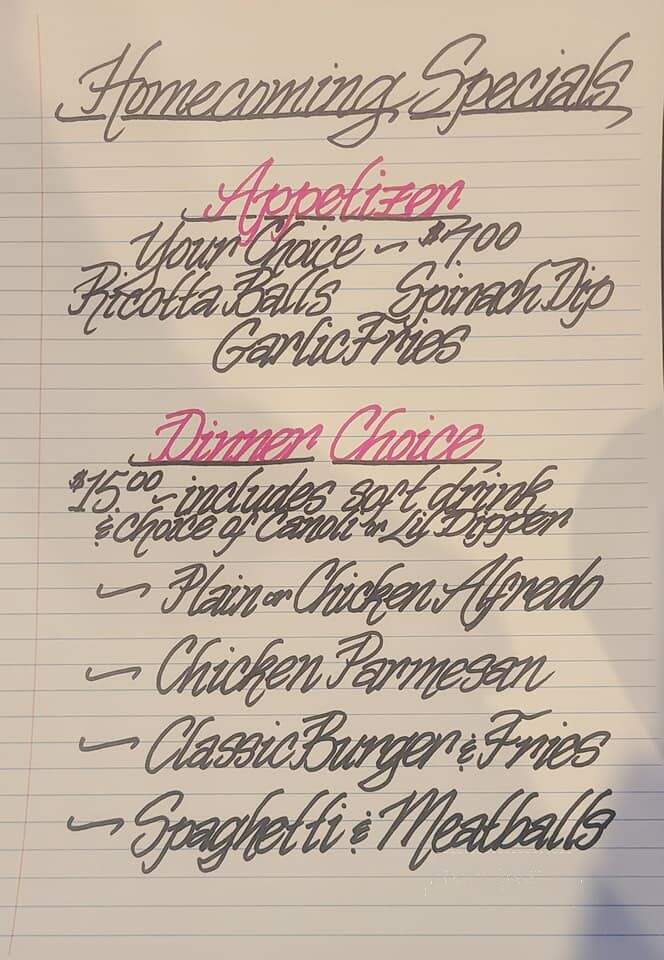 Homecoming Specials
Appetizer
Your Choice - $7.00
Ricotta Balls Spinach Dip
Garlic Fries
Dinner Choice
$15.00 - includes soft drink
& choice of Canoli or Lil Dipper
- Plain or Chicken Alfredo
- Chicken Parmesan
- Classic Burger & Fries
- Spaghetti & Meatballs